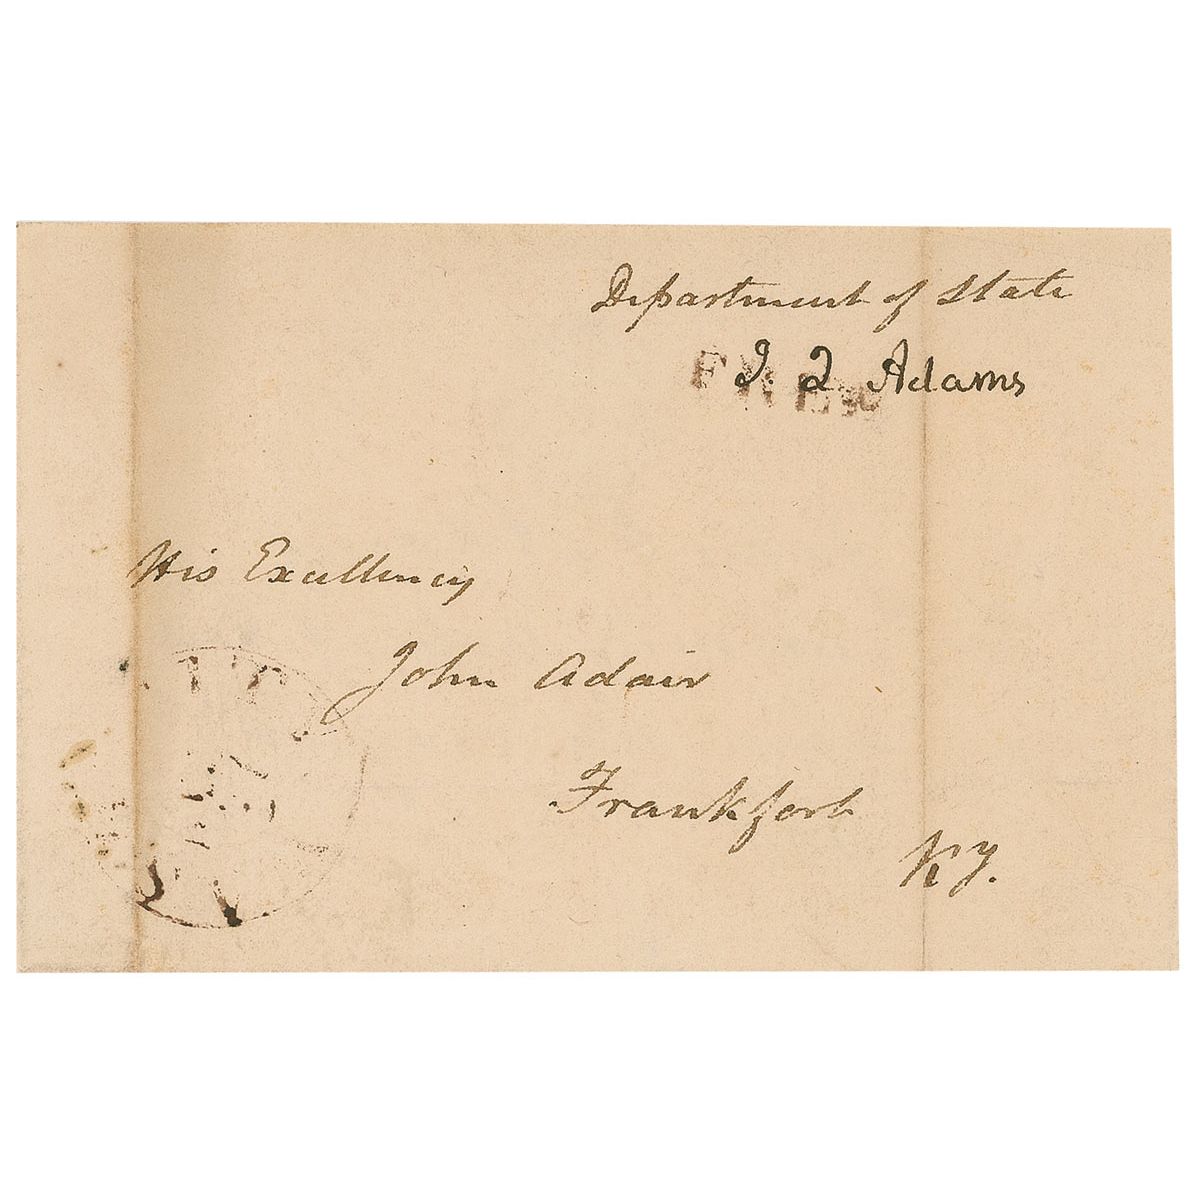 Department of State
FREE
J. Q Adams
His Excellency
John Adair
Frankfort
Ky.